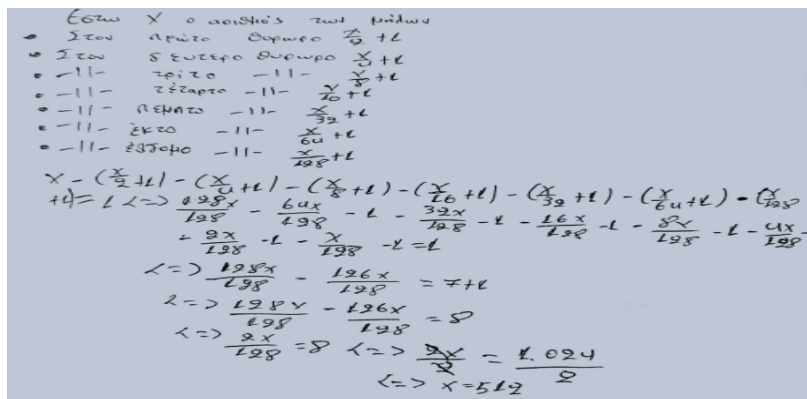 Έστω X ο αριθμός των μήλων
• Στον πρώτο θυρωρο x/2 +1
• Στον δευτερο θυρωρο x/4 +1
• -11- τρίτο -11- x/8 +1
• -11- τέταρτο -11- x/16 +1
• -11- πεμπτο -11- x/32 +1
• -11- έκτο -11- x/64 +1
• -11- έβδομο -11- x/128 +1
x - (x/2 +1) - (x/4 +1) - (x/8 +1) - (x/16 +1) - (x/32 +1) - (x/64 +1) - (x/128
+1) = 1 <=> 128x/128 - 64x/128 - 1 - 32x/128 - 1 - 16x/128 - 1 - 8x/128 - 1 - 4x/128 -
- 2x/128 - 1 - x/128 - 1 = 1
<=> 128x/128 - 126x/128 = 7+1
<=> 128x/128 - 126x/128 = 8
<=> 2x/128 = 8 <=> 2x/2 = 1.024/2
<=> x = 512